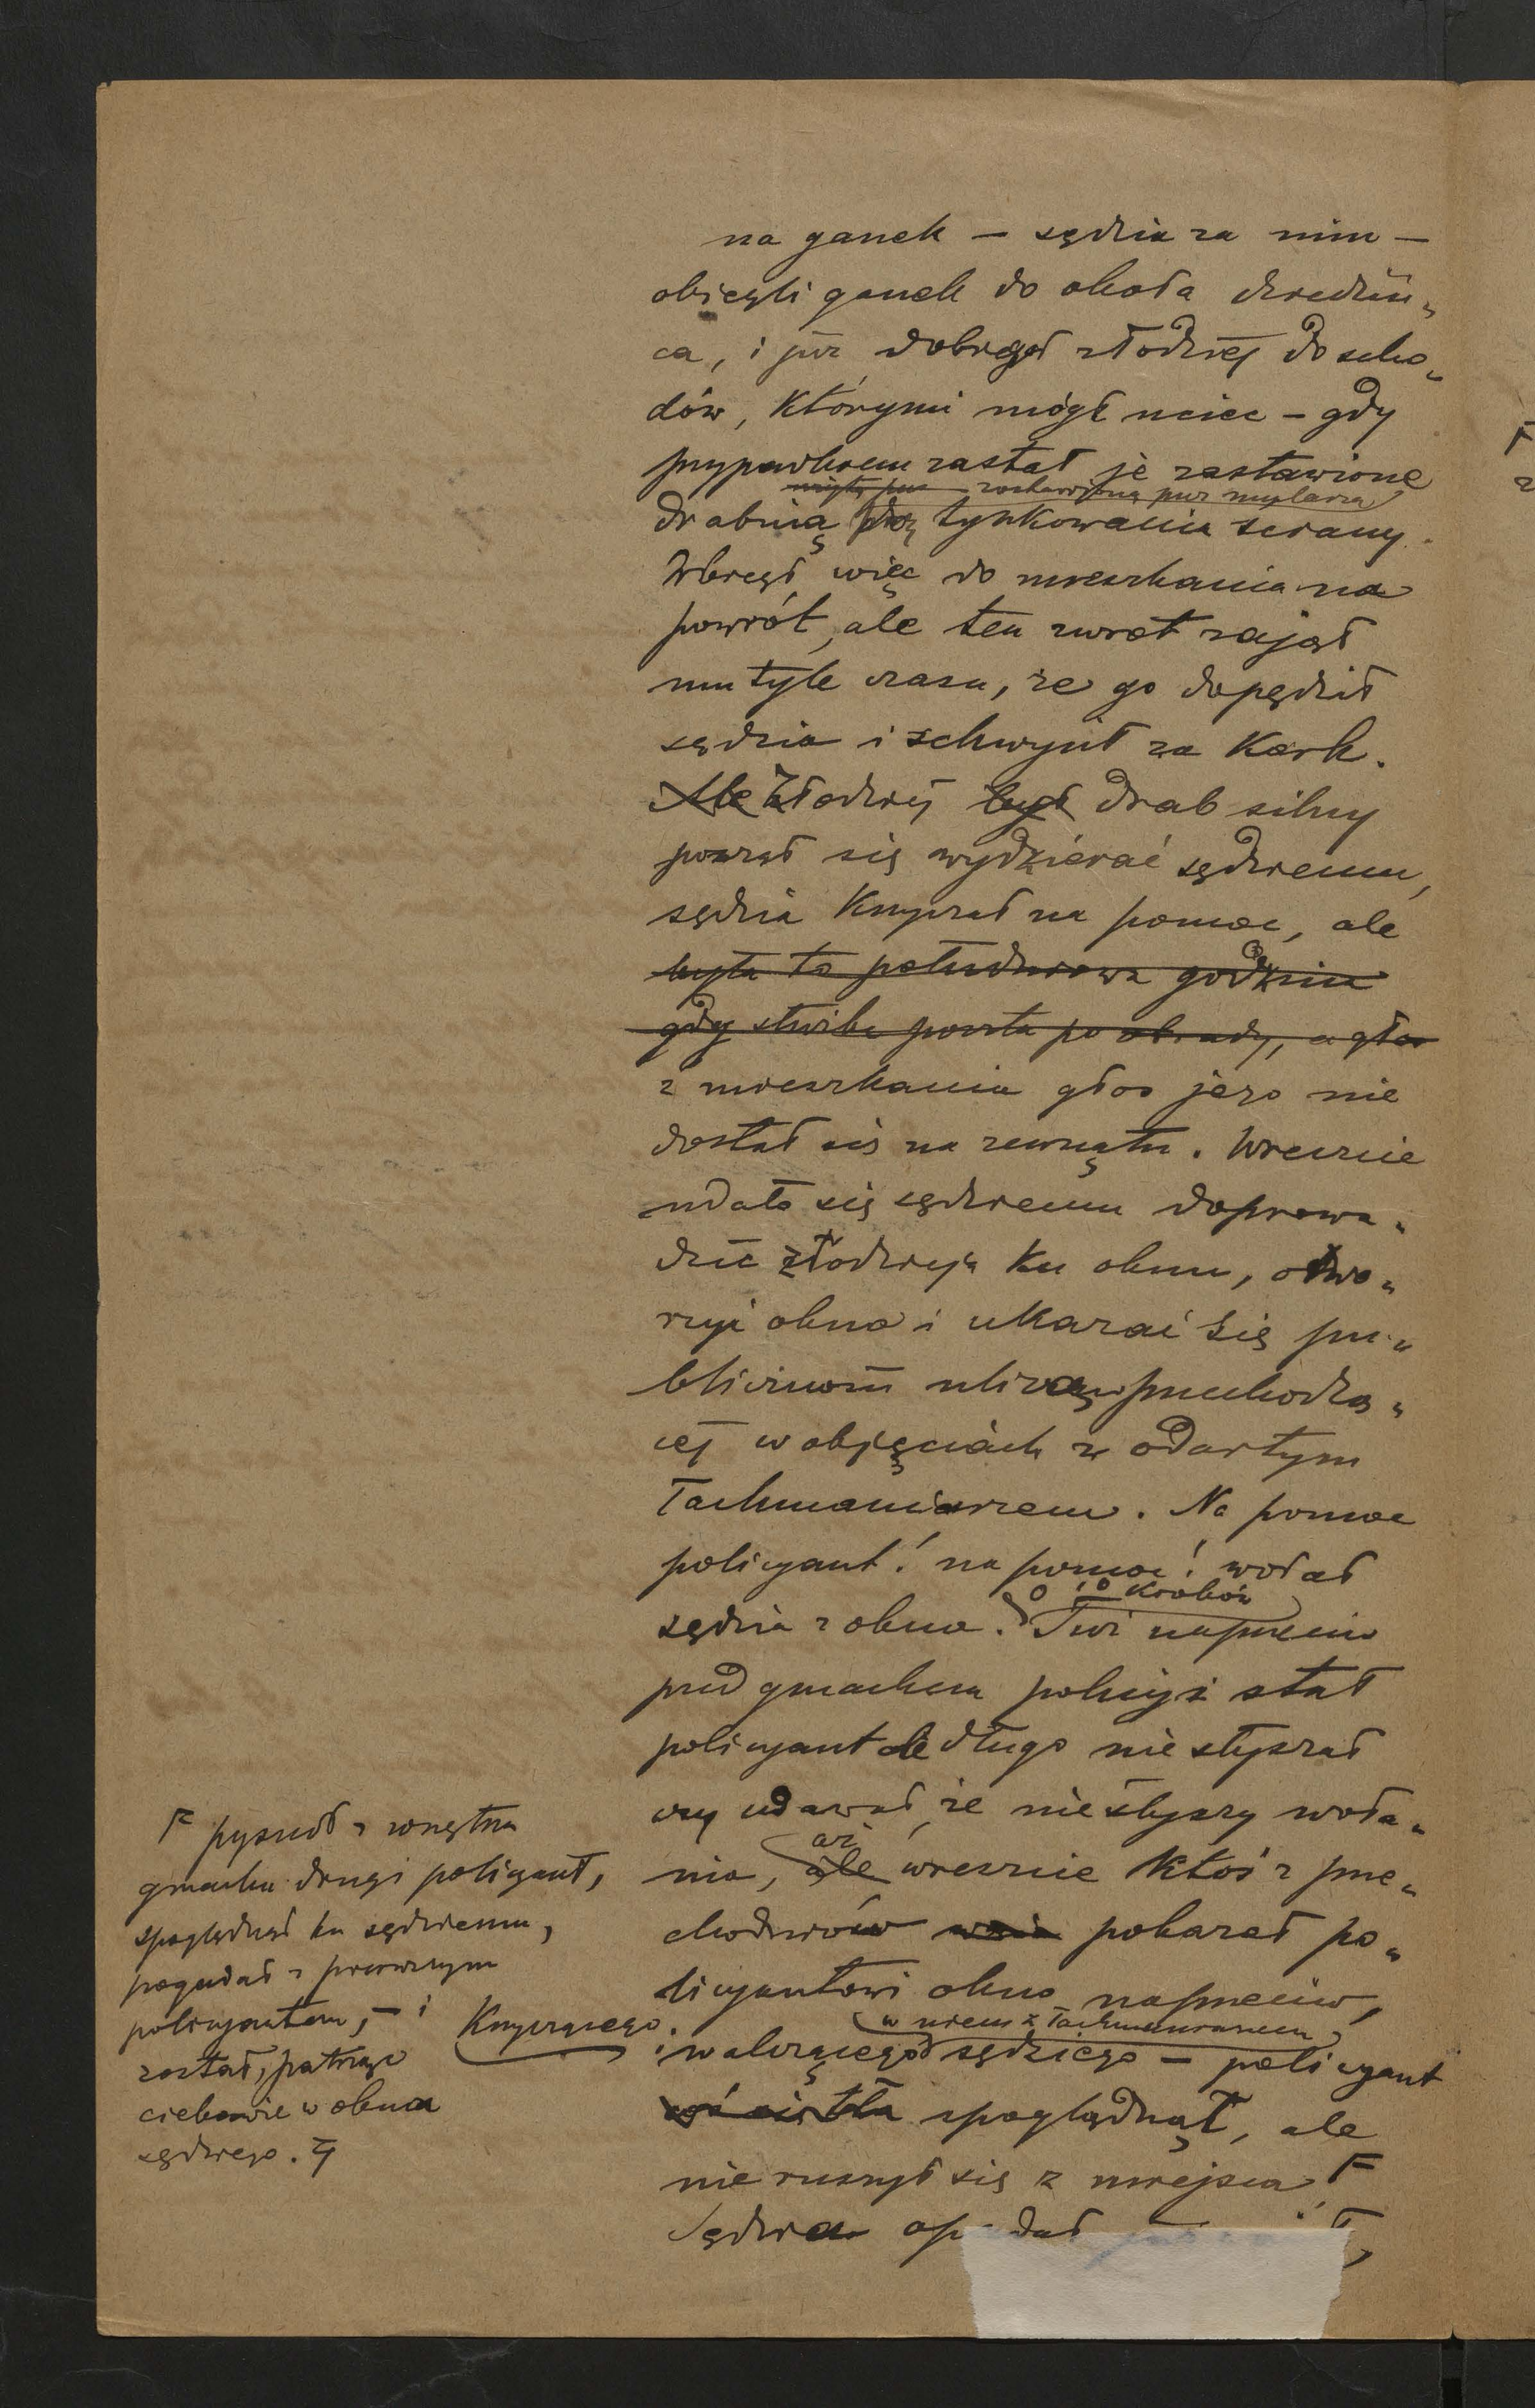 na ganek — sędzia za nim —
obiegli ganek do okoła dziedziń„
ca, i już dobiegał złodziej do scho„
dów, którymi mógł uciec — gdy
przypadkiem zastał je zastawione
zostawioną przez mularza
drabiną do tynkowania ściany.
Wbiegł więc do mieszkania na
powrót, ale ten zwrot zajął
mu tyle czasu, że go dopędził
sędzia i schwycił za kark.
Ale Złodziej był drab silny
począł się wydzierać sędziemu,
sędzia krzyczał na pomoc, ale
była to południowa godzina
gdy służba poszła po obiady, a głos
z mieszkania głos jego nie
dostał się na zewnątrz. Wreszcie
udało się sędziemu doprowa„
dzić złodzieja ku oknu, otwo„
rzyć okno i ukazać się pu„
bliczności ulicą przechodzą„
cej w objęciach z odartym
łachmaniarzem. Na pomoc
policyant! na pomoc! wołał
o 10 kroków
sędzia z okna. Tuż naprzeciw
przed gmachem policyi stał
policyant ale długo nie słyszał
czy udawał, że nie słyszy woła„
aż
nia, ale wreszcie ktoś z prze„
chodniów pokazał po„
licyantowi okno naprzeciw,
w niem z łachmaniarzem
i walczącego sędziego — policyant
spoglądnął, ale
nie ruszył się z miejsca F
Sędzia
F wyszedł z wnętrza
gmachu drugi policyant,
spoglądnął ku sędziemu,
pogadał z pierwszym
policyantem, — i
został, patrząc
ciekawie w okna
sędziego.
Krzyczącego